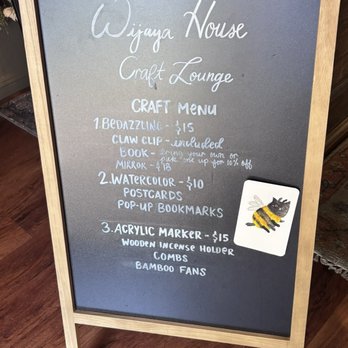 Wijaya House
Craft Lounge
CRAFT MENU
1. BEDAZZLING - $15
CLAW CLIP - included
BOOK - bring your own or
pick one up for 10% off
MIRROR - $18
2. WATERCOLOR - $10
POSTCARDS
POP-UP BOOKMARKS
3. ACRYLIC MARKER - $15
WOODEN INCENSE HOLDER
COMBS
BAMBOO FANS